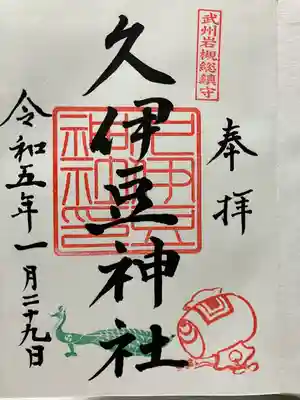 武州岩槻総鎮守
奉拝
久伊豆神社
令和五年一月二十九日